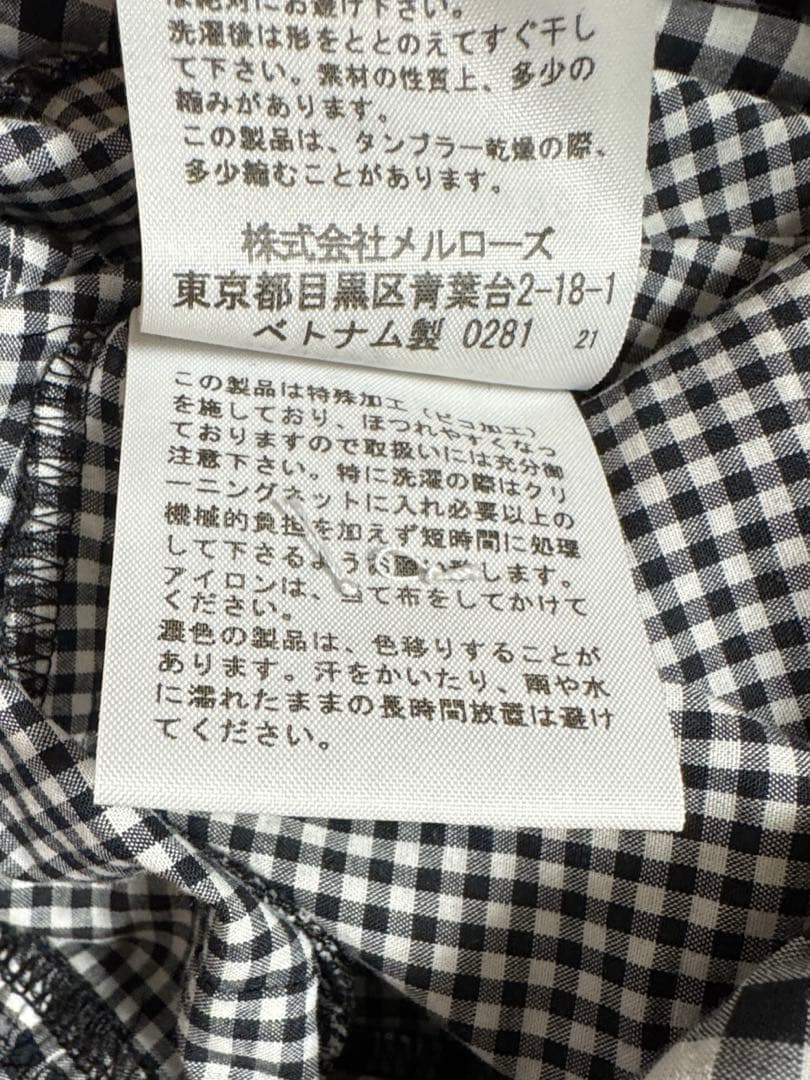 は絶対にお避け下さい。
洗濯後は形をととのえてすぐ干し
て下さい。素材の性質上、多少の
縮みがあります。
この製品は、タンブラー乾燥の際、
多少縮むことがあります。
株式会社メルローズ
東京都目黒区青葉台2-18-1
ベトナム製 0281 21
この製品は特殊加工（ピコ加工）
を施しており、ほつれやすくなっ
ておりますので取扱いには充分御
注意下さい。特に洗濯の際はクリ
ーニングネットに入れ必要以上の
機械的負担を加えず短時間に処理
して下さるよう します。
アイロンは、 て布をしてかけて
ください。
濃色の製品は、色移りすることが
あります。汗をかいたり、雨や水
に濡れたままの長時間放置は避け
てください。